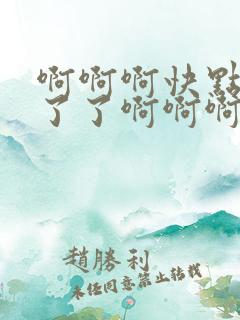 啊啊啊快點
了了啊啊啊
趙勝利
未經同意禁止轉載